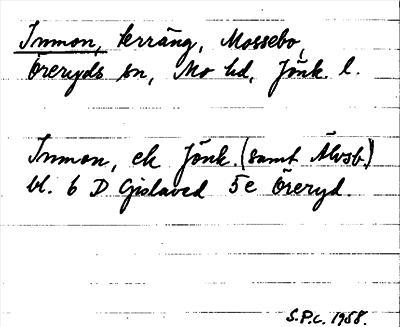 Inmon, terräng, Mossebo,
Öreryds sn, Mo hd, Jönk. l.
Inmon, ek Jönk. (samt Älvsb.)
bl. 6 D Gislaved 5e Öreryd.
S.P.C. 1958.